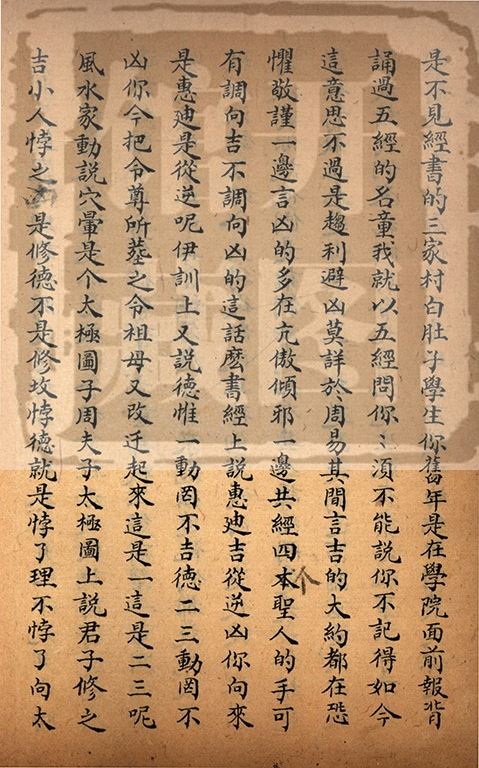 是不見經書的三家村白肚子學生你舊年是在學院面前報背
誦過五經的名童我就以五經問你〻須不能說你不記得如今
這意思不過是趨利避凶莫詳於周易其間言吉的大約都在恐
懼敬謹一邊言凶的多在亢傲傾邪一邊共經四本聖人的手可
个
有調向吉不調向凶的這話麽書經上說惠迪吉從逆凶你向來
是惠迪是從逆呢伊訓上又說德惟一動罔不吉德二三動罔不
凶你今把令尊所塟之令祖母又改迁起來這是一這是二三呢
風水家動說穴暈是个太極圖子周夫子太極圖上說君子修之
吉小人悖之凶是修德不是修坟悖德就是悖了理不悖了向太